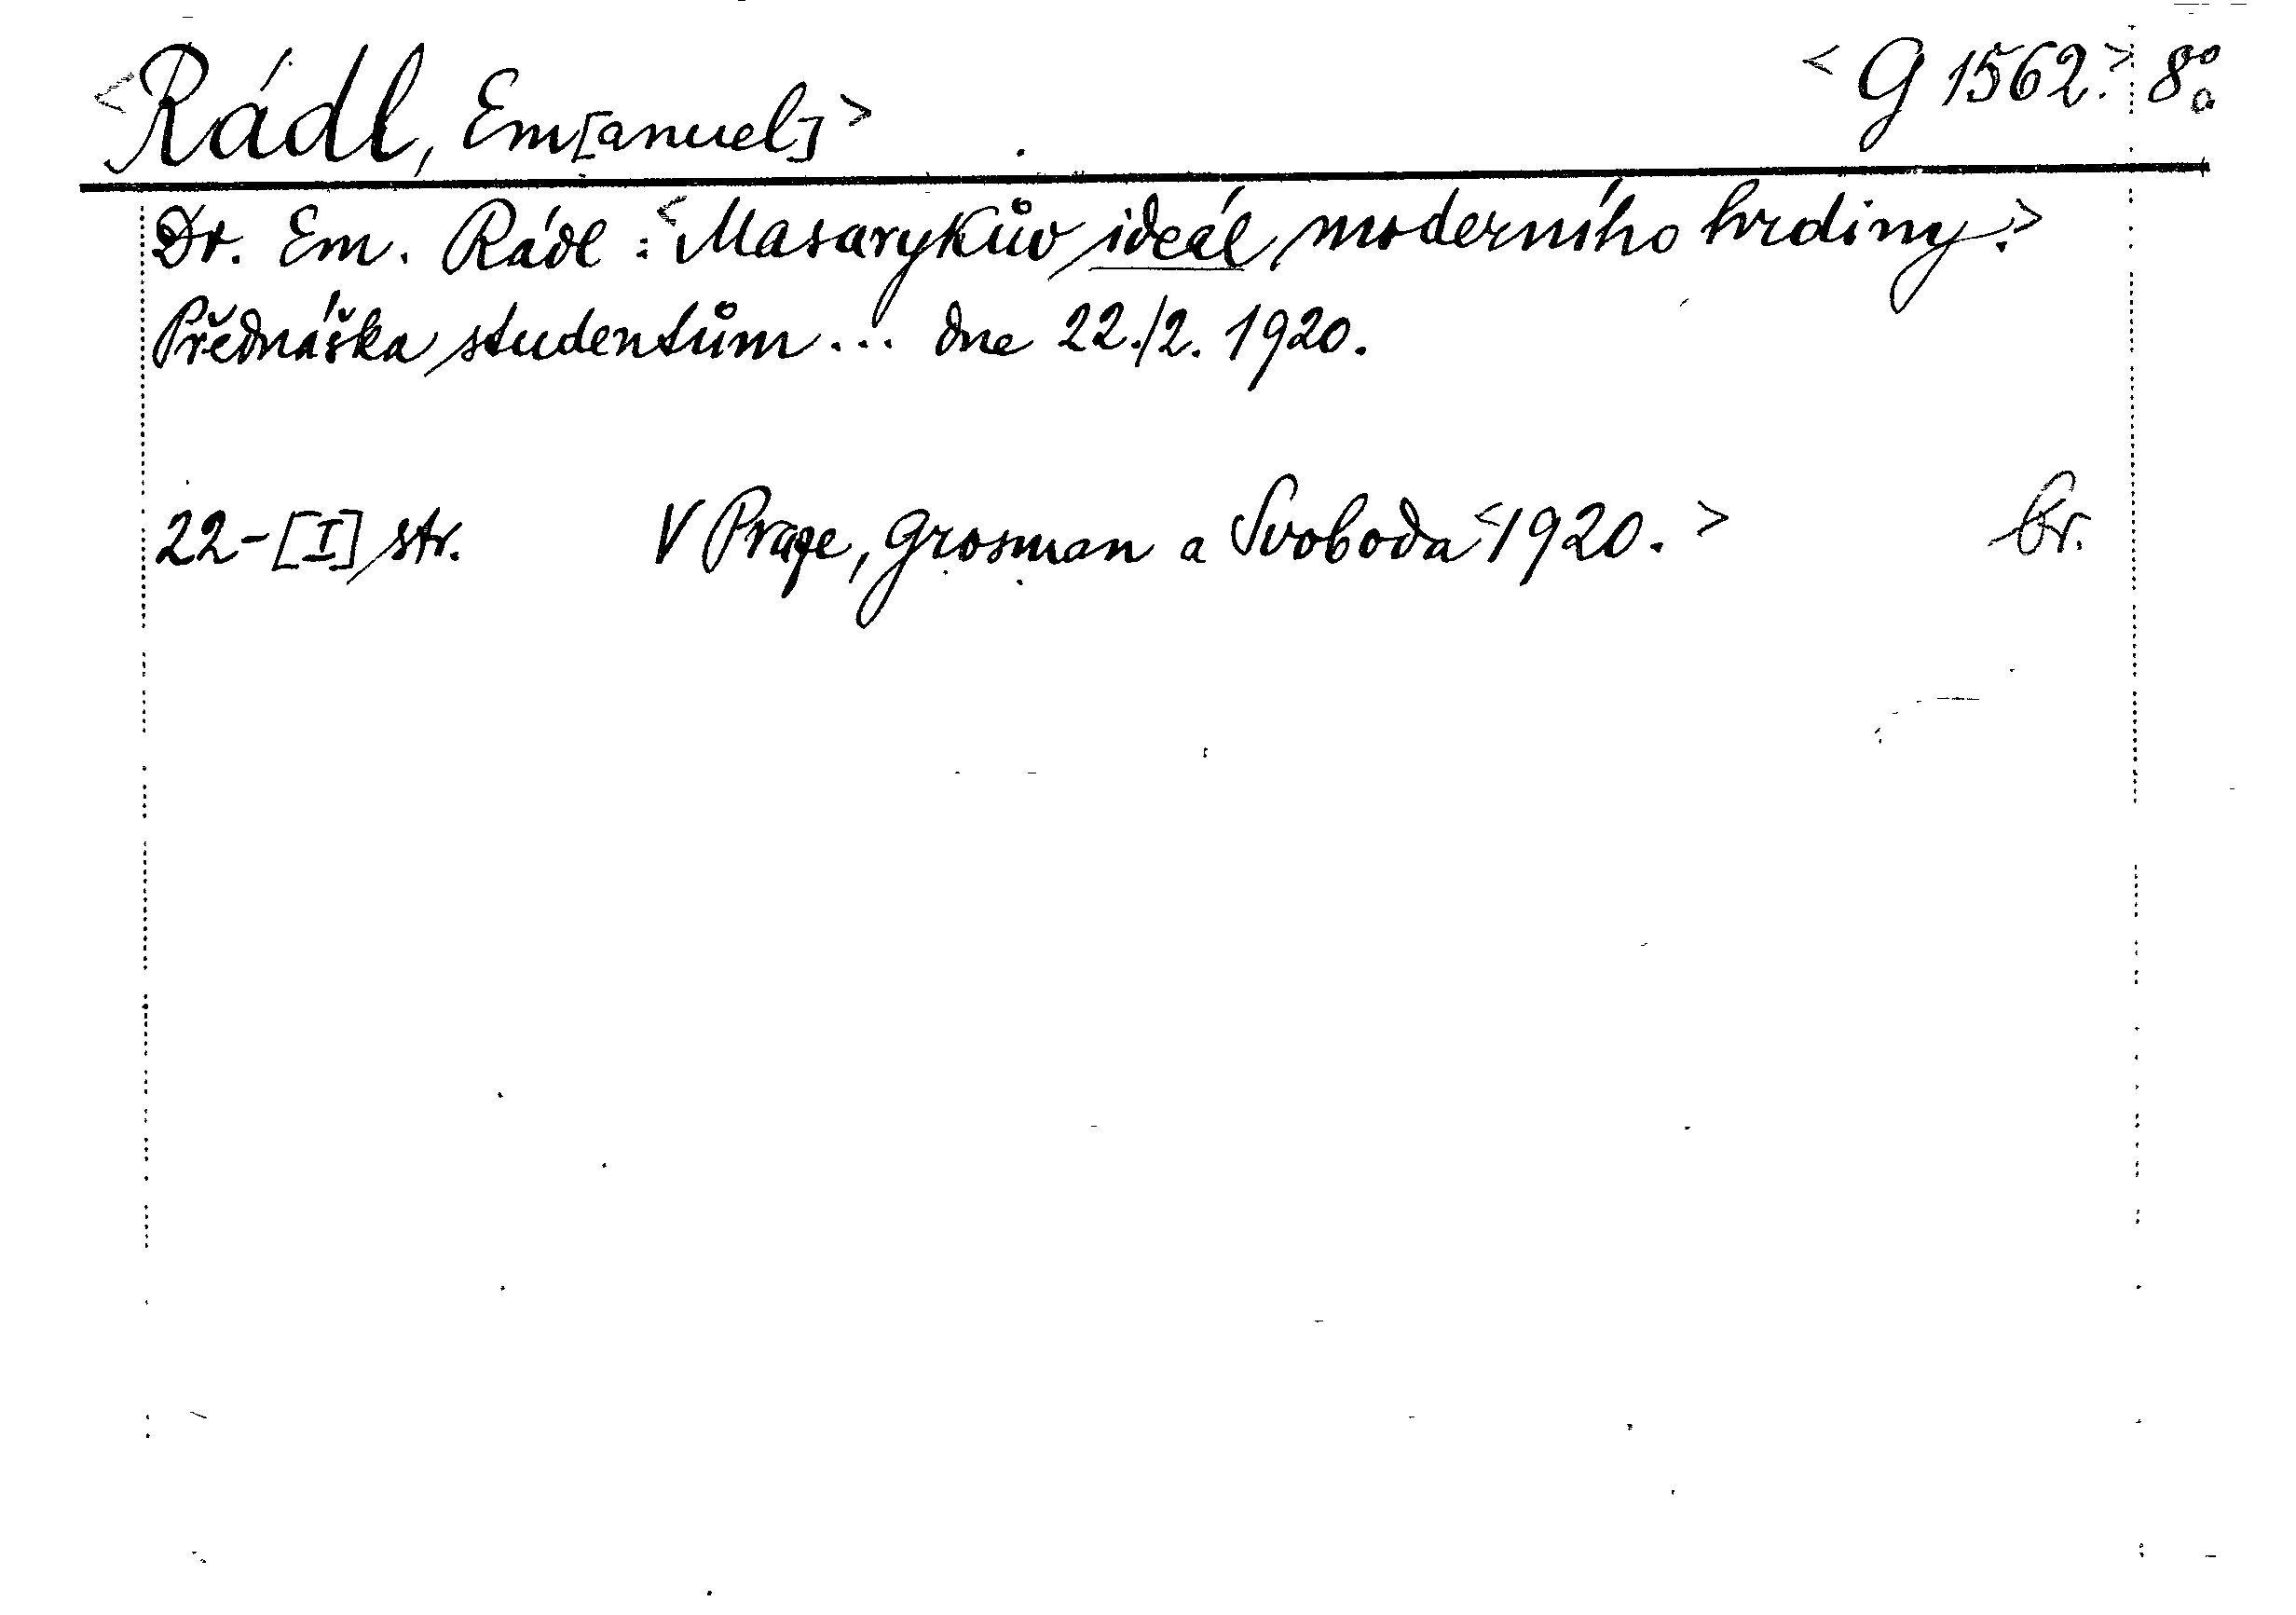 <Rádl, Em[anuel]> <G 1562.> 8°
Dr. Em. Rádl: <Masarykův ideál moderního hrdiny.>
Přednáška studentům... dne 22./2. 1920.
22-[I] str. V Praze, Grosman a Svoboda <1920.> br.